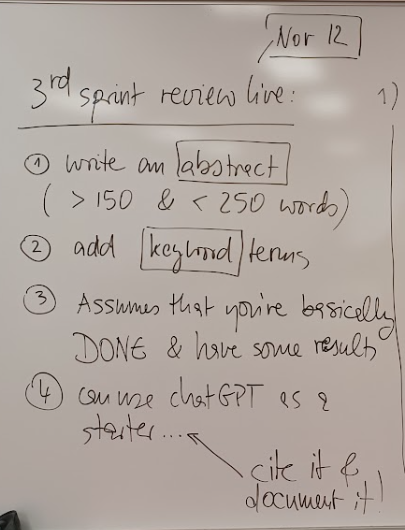 Nov 12
3rd sprint review live:
1)
① write an abstract
( > 150 & < 250 words)
② add keyword terms
③ Assumes that you're basically
DONE & have some results
④ can use chatGPT as a
starter...
cite it &
document it!